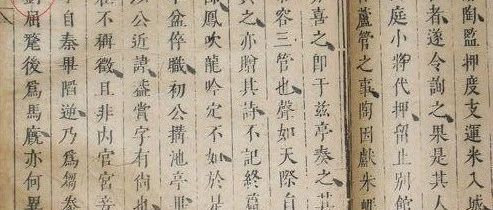 陶監押度支運米入城
者遂令詢之果是其人
庭小將代押留止別館
蘆管之事陶因獻朱
喜之即于兹亭奏之其
容三管也聲如天際自
之亦贈其詩不記終篇
鳳吹龍吟定不如於
盆倅職初公搆池亭
公近諱盎賞字有尙也
不稱徵且非内官宮
自秦畢陷逆乃爲芻
劉屈氂後爲馬厩亦何異